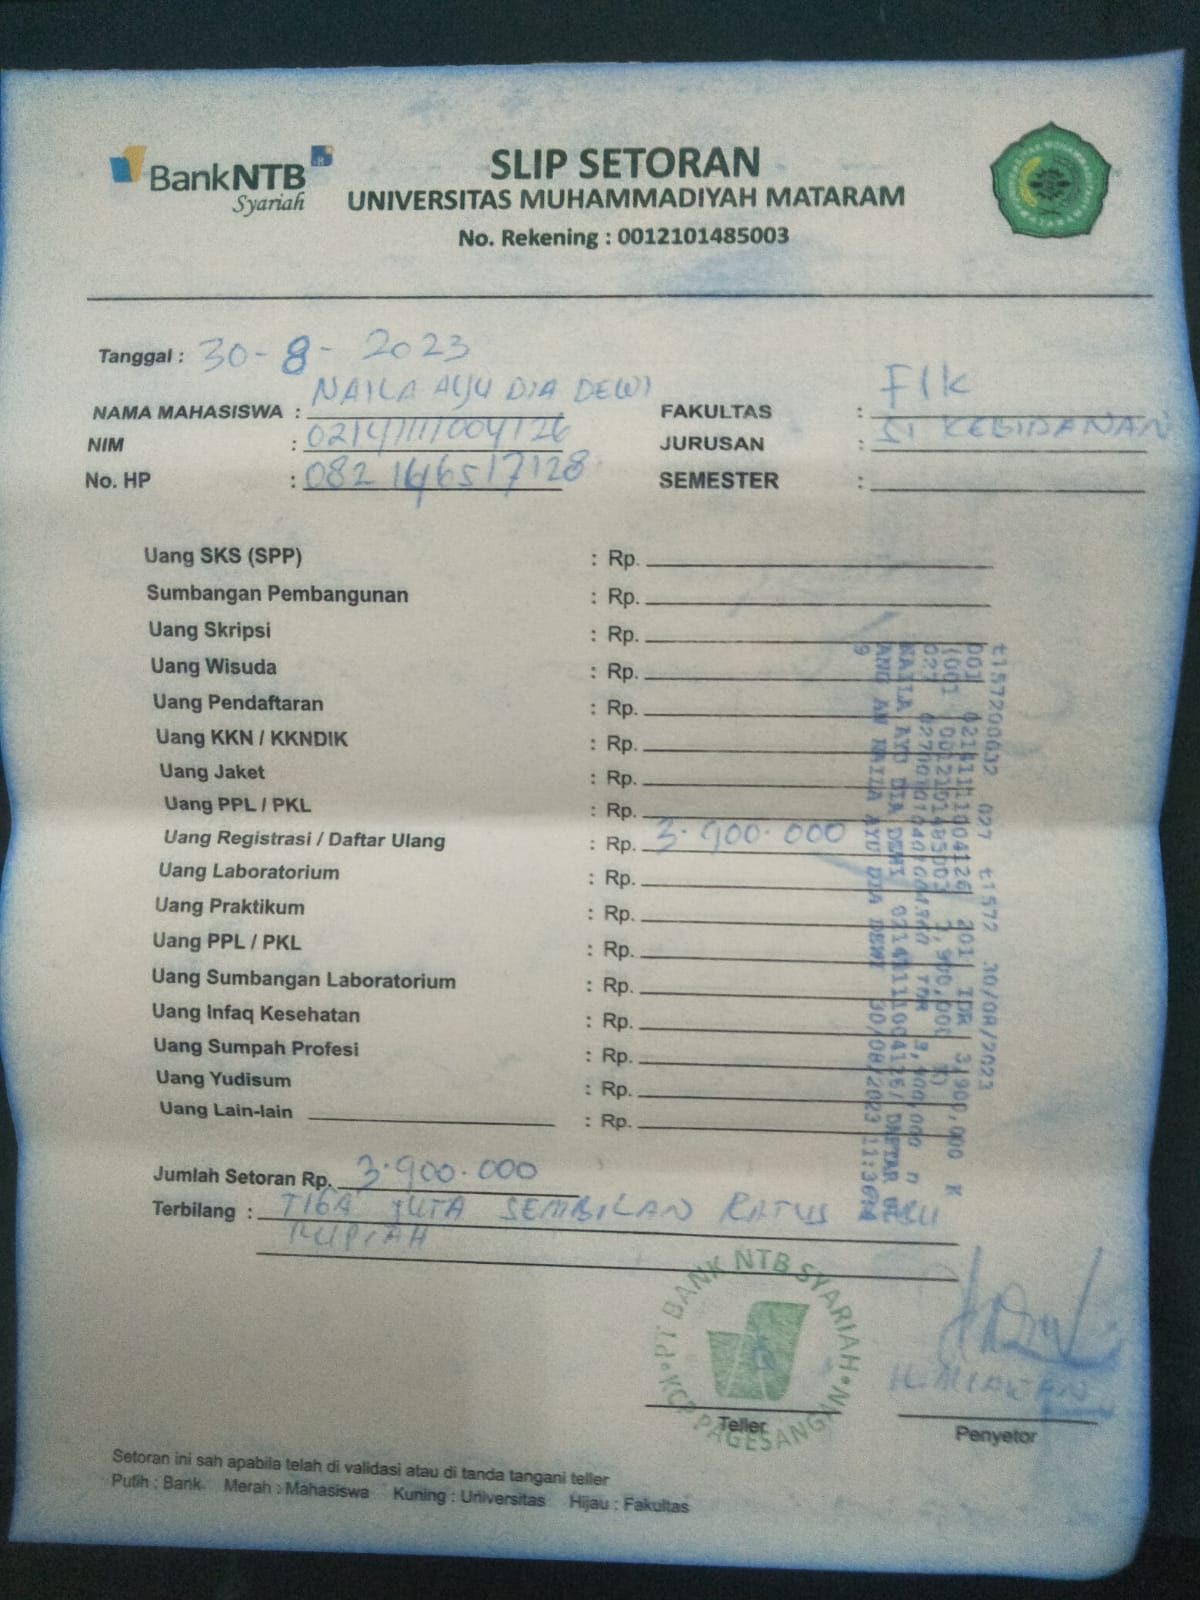 BankNTB
Syariah
SLIP SETORAN
UNIVERSITAS MUHAMMADIYAH MATARAM
No. Rekening : 0012101485003
Tanggal : 30-8-2023
NAMA MAHASISWA : NAILA AYU DIA DEWI
FAKULTAS : FIK
NIM : 021411111004126
JURUSAN : S1 KEBIDANAN
No. HP : 082 146517128
SEMESTER :
Uang SKS (SPP) : Rp.
Sumbangan Pembangunan : Rp.
Uang Skripsi : Rp.
Uang Wisuda : Rp.
Uang Pendaftaran : Rp.
Uang KKN / KKNDIK : Rp.
Uang Jaket : Rp.
Uang PPL / PKL : Rp.
Uang Registrasi / Daftar Ulang : Rp. 3.900.000
Uang Laboratorium : Rp.
Uang Praktikum : Rp.
Uang PPL / PKL : Rp.
Uang Sumbangan Laboratorium : Rp.
Uang Infaq Kesehatan : Rp.
Uang Sumpah Profesi : Rp.
Uang Yudisum : Rp.
Uang Lain-lain : Rp.
t157200032 027 t1572 30/08/2023
001 021411111004126 201 IDR 3,900,000 K
1001 0012101485003 3,900,000
027 3,900,000
NAILA AYU DIA DEWI 021411111004126/ DAFTAR UL
ANG AN NAILA AYU DIA DEWI 30/08/2023 11:30:14
9
Jumlah Setoran Rp. 3.900.000
Terbilang : TIGA JUTA SEMBILAN RATUS RIBU
RUPIAH
PT BANK NTB SYARIAH
KCP PAGESANGAN
Teller
Penyetor
Setoran ini sah apabila telah di validasi atau di tanda tangani teller
Putih : Bank Merah : Mahasiswa Kuning : Universitas Hijau : Fakultas